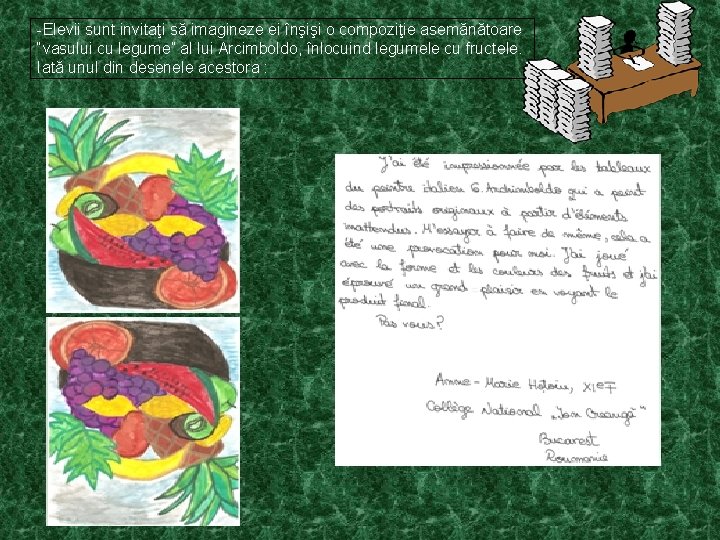 -Elevii sunt invitaţi să imagineze ei înşişi o compoziţie asemănătoare
“vasului cu legume” al lui Arcimboldo, înlocuind legumele cu fructele.
Iată unul din desenele acestora :
J'ai été impressionnée par les tableaux
du peintre italien G. Archimboldo qui a peint
des portraits originaux à partir d'éléments
inattendus. M'essayer à faire de même, cela a
été une provocation pour moi. J'ai joué
avec la forme et les couleurs des fruits et j'ai
éprouvé un grand plaisir en voyant le
produit final.
Pas vous?
Anne - Marie XI e F
Collège National „Ion Creangă"
Bucarest
Roumanie